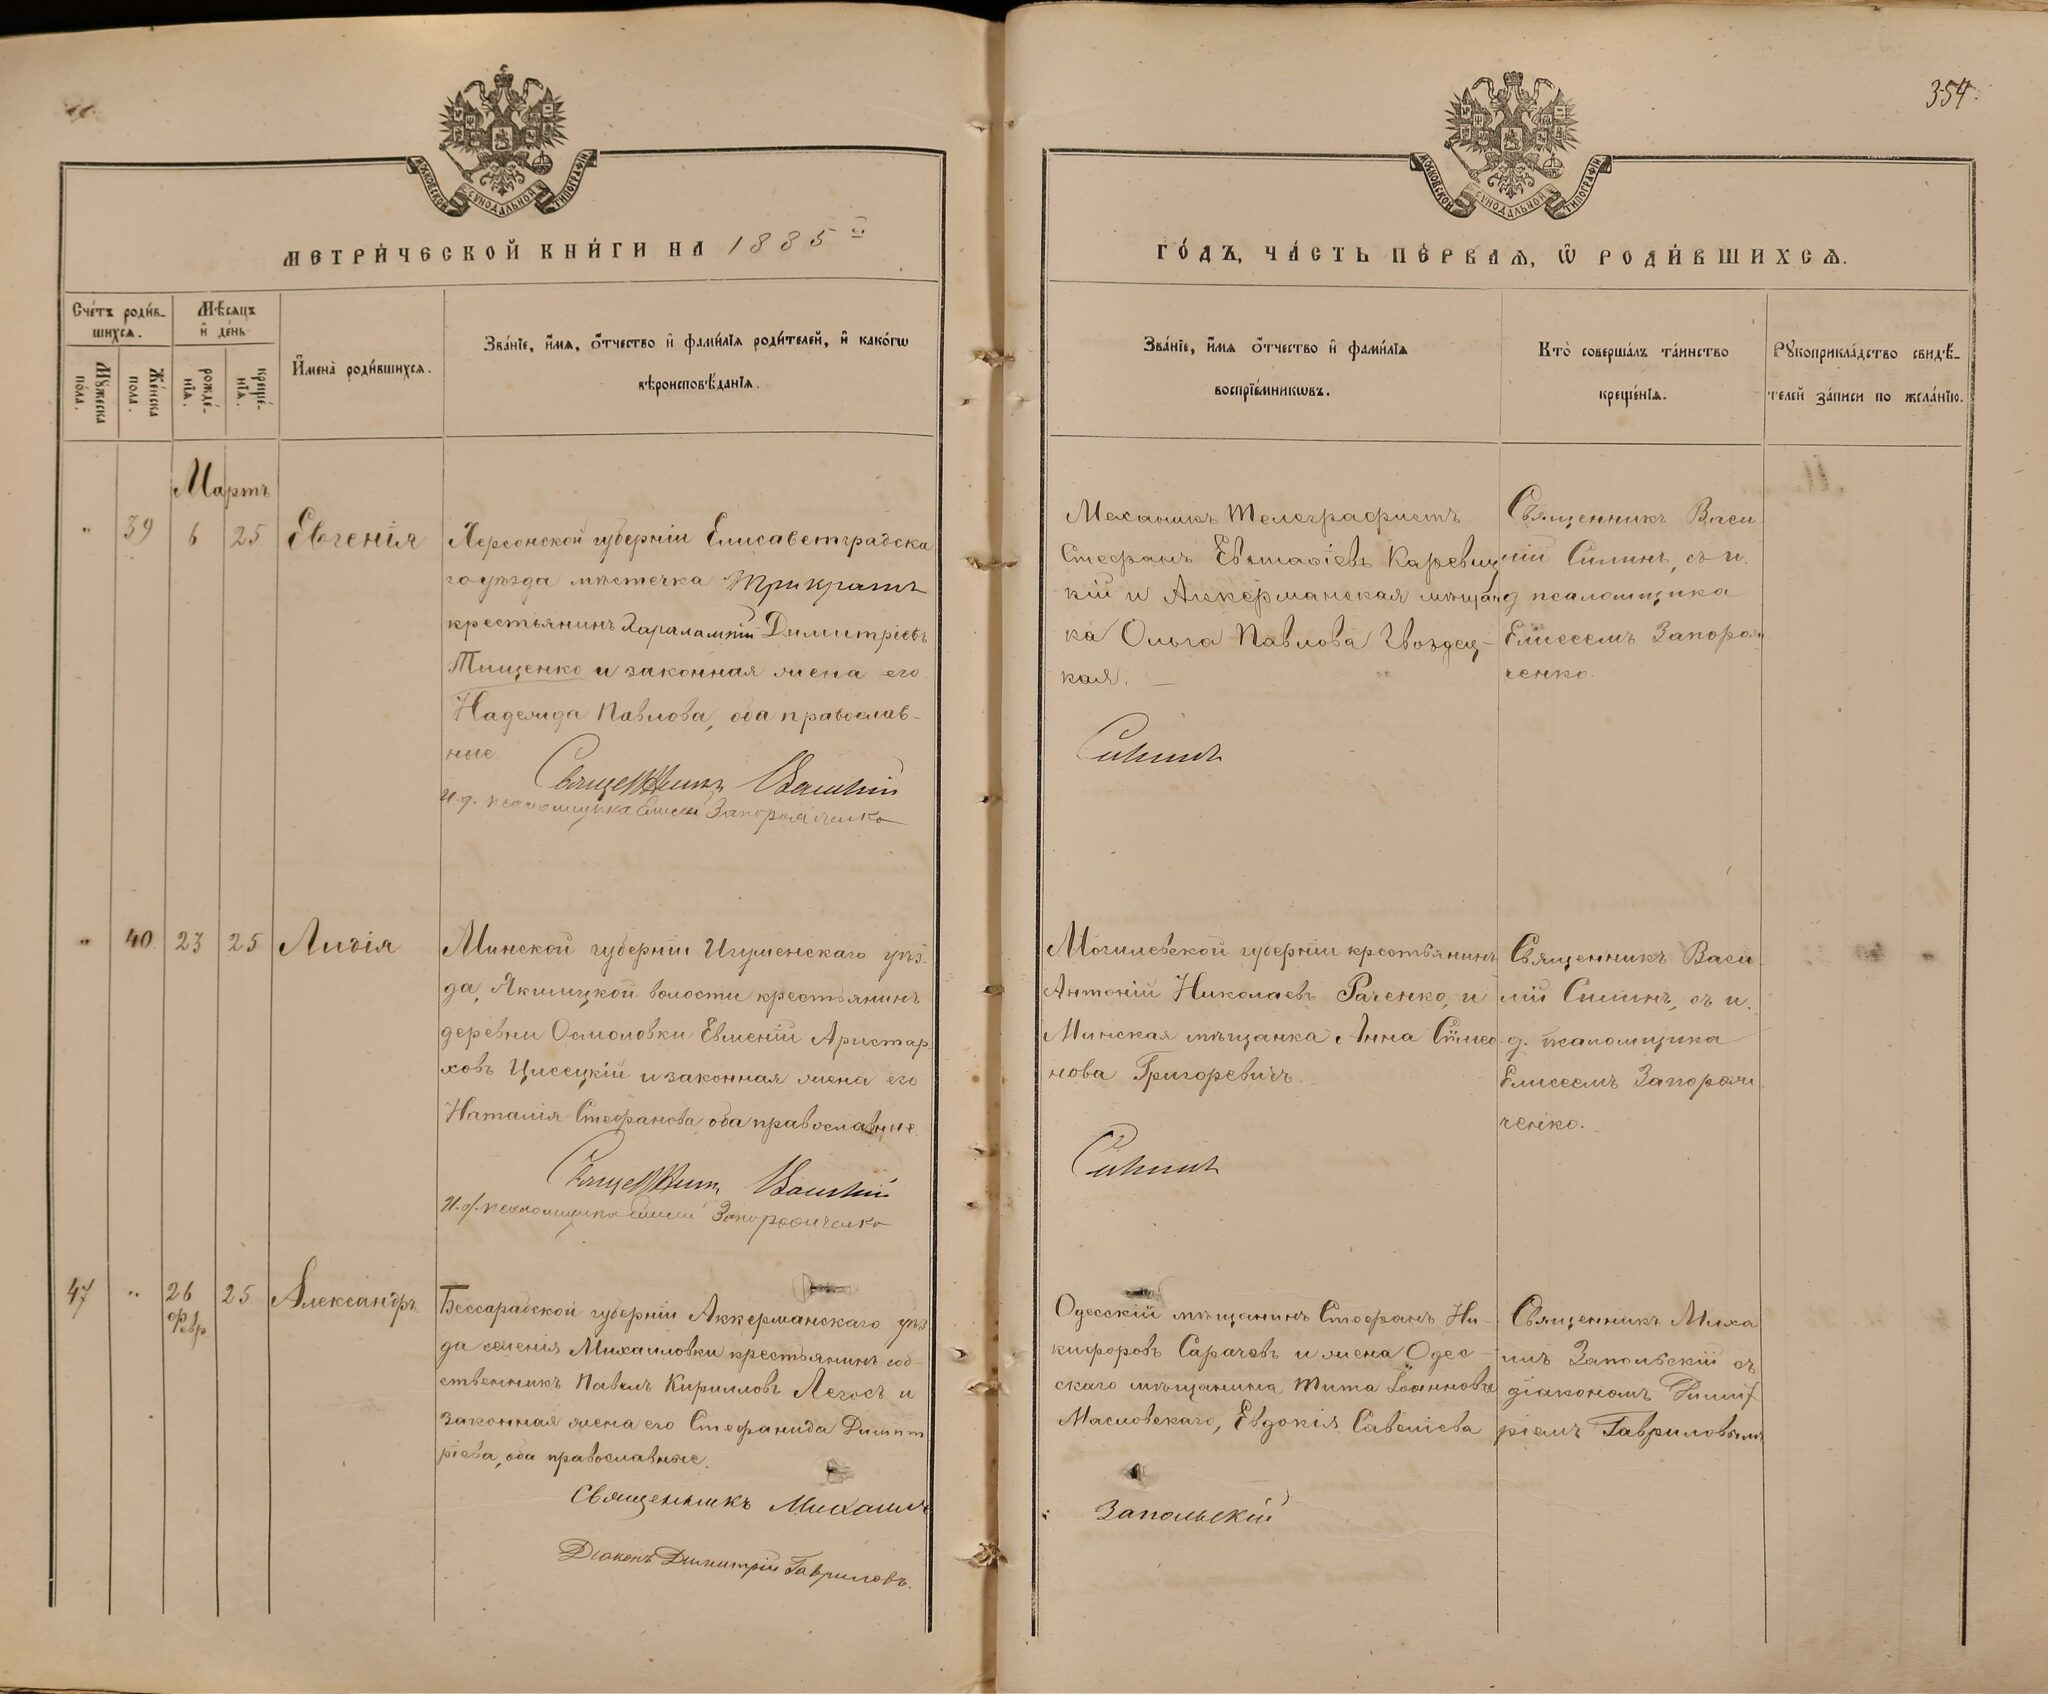 354.
МОСКОВСКОЙ СУНОДАЛЬНОЙ ТИПОГРАФІИ
МОСКОВСКОЙ СУНОДАЛЬНОЙ ТИПОГРАФІИ
МЕТРИ́ЧЕСКОЙ КНИ́ГИ НА 1885 й
ГО́ДЪ, ЧА́СТЬ ПЕ́РВАѦ, Ѡ РОДИ́ВШИХСѦ.
Сче́тъ роди́в-
шихсѧ.
Мѣ́сѧцъ
и де́нь
Мꙋ́жеска по́ла.
Же́нска пола.
рожде́-
нїѧ.
креще́-
нїѧ.
И҆мена̀ роди́вшихсѧ.
Зва́нїе, и҆́мѧ, ѻ҆́тчество и҆ фами́лїѧ роди́телей, и҆ како́гѡ
вѣроисповѣ́данїѧ.
Зва́нїе, и҆́мѧ ѻ҆́тчество и҆ фами́лїѧ
воспрїе́мникѡвъ.
Кто̀ соверша́лъ та́инство
креще́нїѧ.
Рꙋкоприкла́дство свидѣ́-
телей за́писи по жела́нїю.
Мартъ
" 39 6 25 Евгенія
Херсонской губерніи Елисаветградска
го уѣзда мѣстечка Трикратъ
крестьянинъ Харалампій Димитріевъ
Тищенко и законная жена его
Надежда Павлова, оба православ-
ные
Священникъ Василій
И. д. псаломщика Елисей Запорожченко
Механикъ Телеграфистъ
Стефанъ Евстафіевъ Каревиц
кій и Аккерманская мѣщан
ка Ольга Павлова Гвоздец-
кая.
Силинъ
Священникъ Васи-
лій Силинъ, съ и.
д псаломщика
Елисеемъ Запорож
ченко.
" 40 23 25 Лидія
Минской губерніи Игуменскаго уѣз-
да, Якшицкой волости крестьянинъ
деревни Осмоловки Евменій Аристар
ховъ Цисецкій и законная жена его
Наталія Стефанова оба православные.
Священникъ Василій
И. д. псаломщика Елисей Запорожченко
Могилевской губерніи крестьянинъ
Антоній Николаевъ Раченко, и
Минская мѣщанка Анна Сѵмео
нова Григоревичъ.
Силинъ
Священникъ Васи-
лій Силинъ, съ и.
д. псаломщика
Елисеемъ Запорож
ченко.
47 " 26 февр 25. Александръ
Бессарабской губерніи Аккерманскаго уѣз
да селенія Михаиловки крестьянинъ соб-
ственникъ Павелъ Кирилловъ Легосъ и
законная жена его Стефанида Димит
ріева, оба православные.
Священникъ Михаилъ
Діаконъ Димитрій Гавриловъ.
Одесскій мѣщанинъ Стефанъ Ни-
кифоровъ Сарачевъ и жена Одес-
скаго мѣщанина Тита Іоаннова
Масловскаго, Евдокія Савеліева
Запольскій
Священникъ Миха
илъ Запольскій съ
діакономъ Димит
ріемъ Гавриловымъ